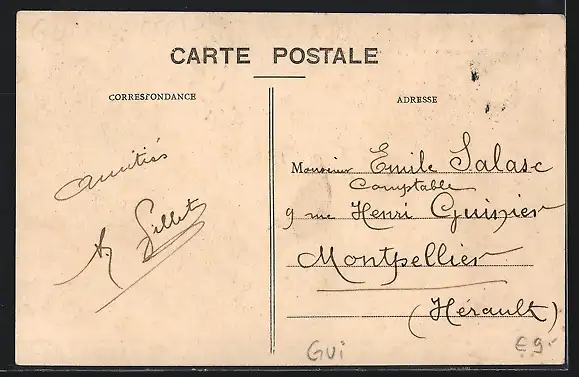 CARTE POSTALE
CORRESPONDANCE
ADRESSE
amitiés
A. Gillet
Monsieur Emile Salasc
Comptable
9 rue Henri Guinier
Montpellier
(Hérault)
GUi
€9.-